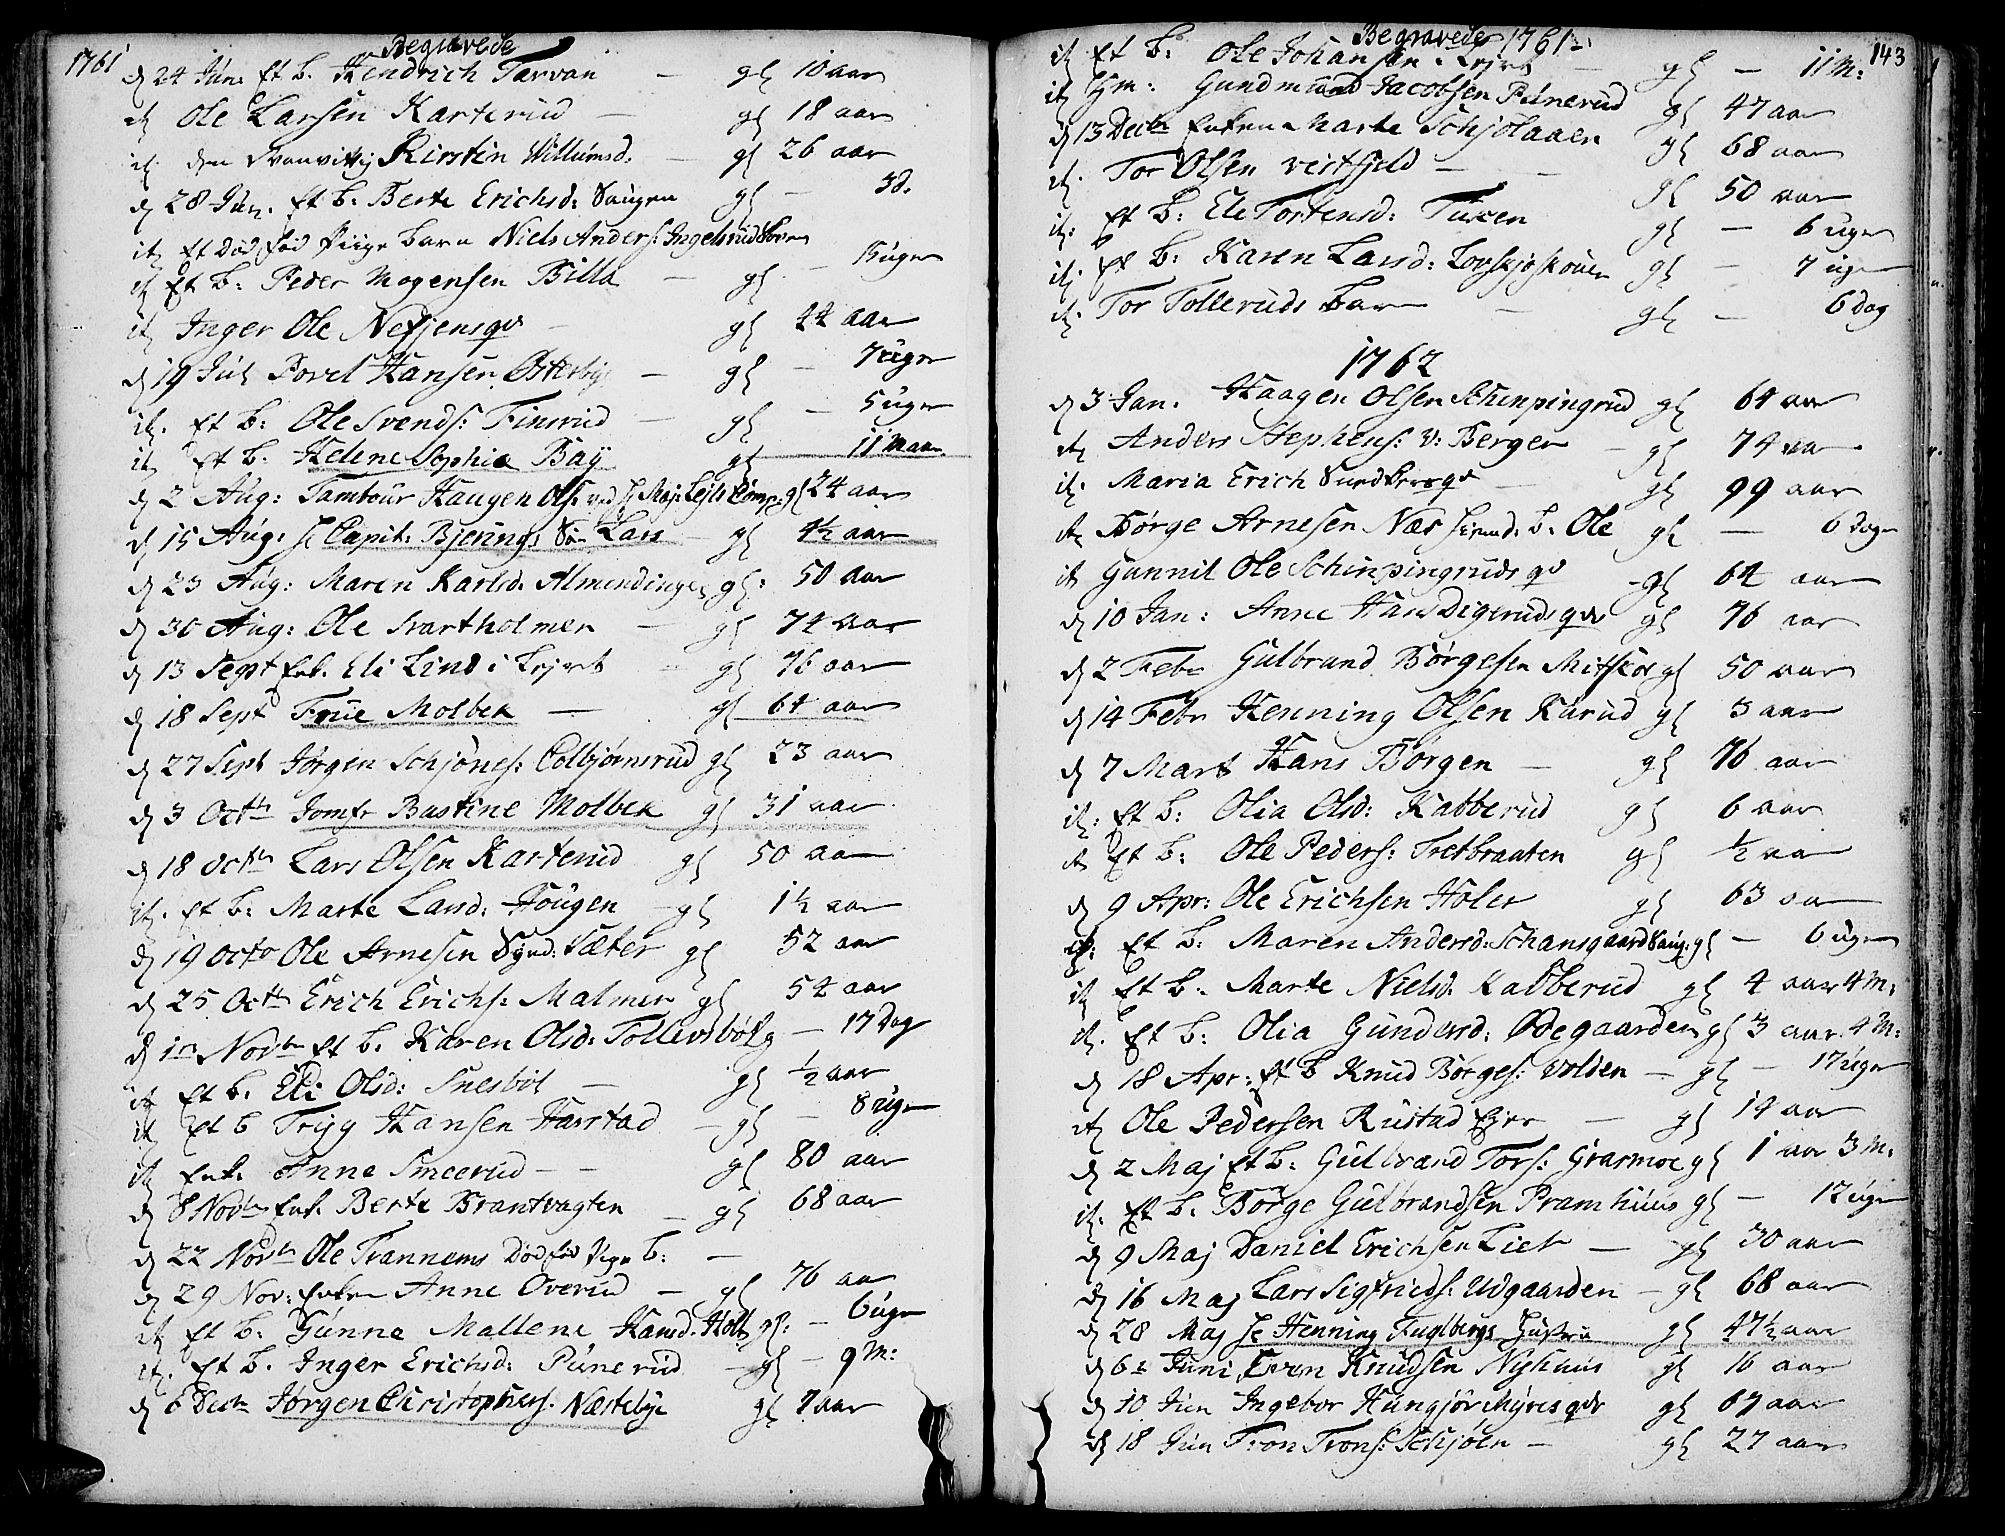 1761 Begravede
d 24 Jun: Et b. Hendrich Tarvan - gl 10 aar
it Ole Larsen Karterud - gl 18 aar
it. den Svanvittig Kirstin Villumsd. - gl 26 aar
d 28 Jun. Et b: Berte Erichsd: Haugen gl -
it Et Død fød Piige barn Niels Anders: Ingelsrud
it Et b: Peder Mogensen Billa - gl - 15 uger
it Inger Ole Nefjensqv - gl 44 aar
d 19 Jul Povel Hansen Østerby - gl - 7 uger
it. Et b: Ole Svends: Finsrud - gl - 5 uger
it Et b. Helene Sophia Bay gl 11 Maan.
d 2 Aug: Tambour Haagen Ols. ved H Maj: Lejls Comp: gl 24 aar
d 15 Aug: H Capit: Bjerings Søn Lars - gl 4½ aar
d 23 Aug: Maren Karlsd. Almendingen gl: 50 aar
d 30 Aug: Ole Svartholmen - gl 74 aar
d 13 Sept Enk. Eli Lind i Lejret - gl 76 aar
d 18 Sept Frue Molbek - gl 64 aar
d 27 Sept Jørgen Schjønes: Colbjørnsrud gl 23 aar
d 3 Octb Jomfr Bastine Molbek gl 31 aar
d 18 Octb Lars Olsen Karterud gl 50 aar
it. Et b: Marte Larsd: Hougen - gl 1½ aar
d 19 Octo Ole Arnesen Synd: Sæter gl 52 aar
d 25 Octb Erich Erichs: Malmer gl 54 aar
d 1 Novb Et b. Karen Olsd: Tollevsbøl g - 17 Dag
it Et b. Eli Olsd: Snesbøl - gl ½ aar
it Et b Tryg Hansen Harstad - gl - 8 uger
it Enk. Anne Smeerud - - gl 80 aar
d 8 Novb Enk. Berte Brantvagten - gl 68 aar
d 22 Novb Ole Trannems Død fød Pige b: -
d 29 Nov: Enken Anne Overud - gl 76 aar
it Et b. Gunne Mallene Hansd. Holt gl: - 6 uger
it. Et b. Inger Erichsd: Punerud - gl - 9 M:
d 6 Decb Jørgen Christophers: Næstebye gl 7 aar
Begravede 1761 143
it Et b: Ole Johansen Lejret - gl - 11 M:
it Hm: Gundmund Jacobsen Punerud gl 47 aar
d 13 Decb Enken Marte Schjølaaen gl 68 aar
it. Tor Olsen vestfjeld - - gl 50 aar
it: Et b: Ele Tortensd: Tuxen gl - 6 uger
it: Et b: Karen Larsd: gl - 7 uger
it. Tor Tolleruds barn - gl - 6 dag
1762
d 3 Jan. Haagen Olsen Schinpingrud gl 64 aar
it Anders Stephens: v: Berger - gl 74 aar
it. Maria Erich Sundbyesqv - gl 99 aar
it Børge Arnesen Næs b: Ole gl - 6 dage
it Gunnil Ole Schinpingruds qv - gl 64 aar
d 10 Jan: Anne Hans Digeruds qv gl 76 aar
d 2 Febr Gulbrand Børgesen Mitskoe gl 50 aar
d 14 Febr Henning Olsen Karud gl 3 aar
d 7 Mart Hans Børgen - gl 76 aar
it: Et b: Olia Olsd: Kabberud gl 6 aar
it Et b: Ole Peders: Tretbraaten gl ½ aar
d 9 Apr: Ole Erichsen Holer gl 63 aar
it: Et b. Maren Andersd: Schansgaard Haug: gl - 6 uger
it Et b. Marte Nielsd. Kabberud gl 4 aar 4 M:
it. Et b: Olia Gundersd: Ødegaarden gl 3 aar 4 M:
d 18 Apr: Et b Knud Børges: Volden - gl - 17 uger
it Ole Pedersen Rustad - gl 14 aar
d 2 Maj Et b: Gulbrand Tors: Grasmoe gl 1 aar 3 M:
it. Et b. Børge Gulbrandsen Pramhuus gl - 12 uger
d 9 Maj Daniel Erichsen Lier - gl 30 aar
d 16 Maj Lars Sigfrids: Udgaarden - gl 68 aar
d 28 Maj H Henning Fuglbergs Hustrue gl 47½ aar
d 6 Juni Even Knudsen Nyhuus gl 16 aar
d 10 Jun Ingebor Hungjørimyres qv gl 67 aar
d 18 Jun Tron Trons: Schjøen - gl 27 aar